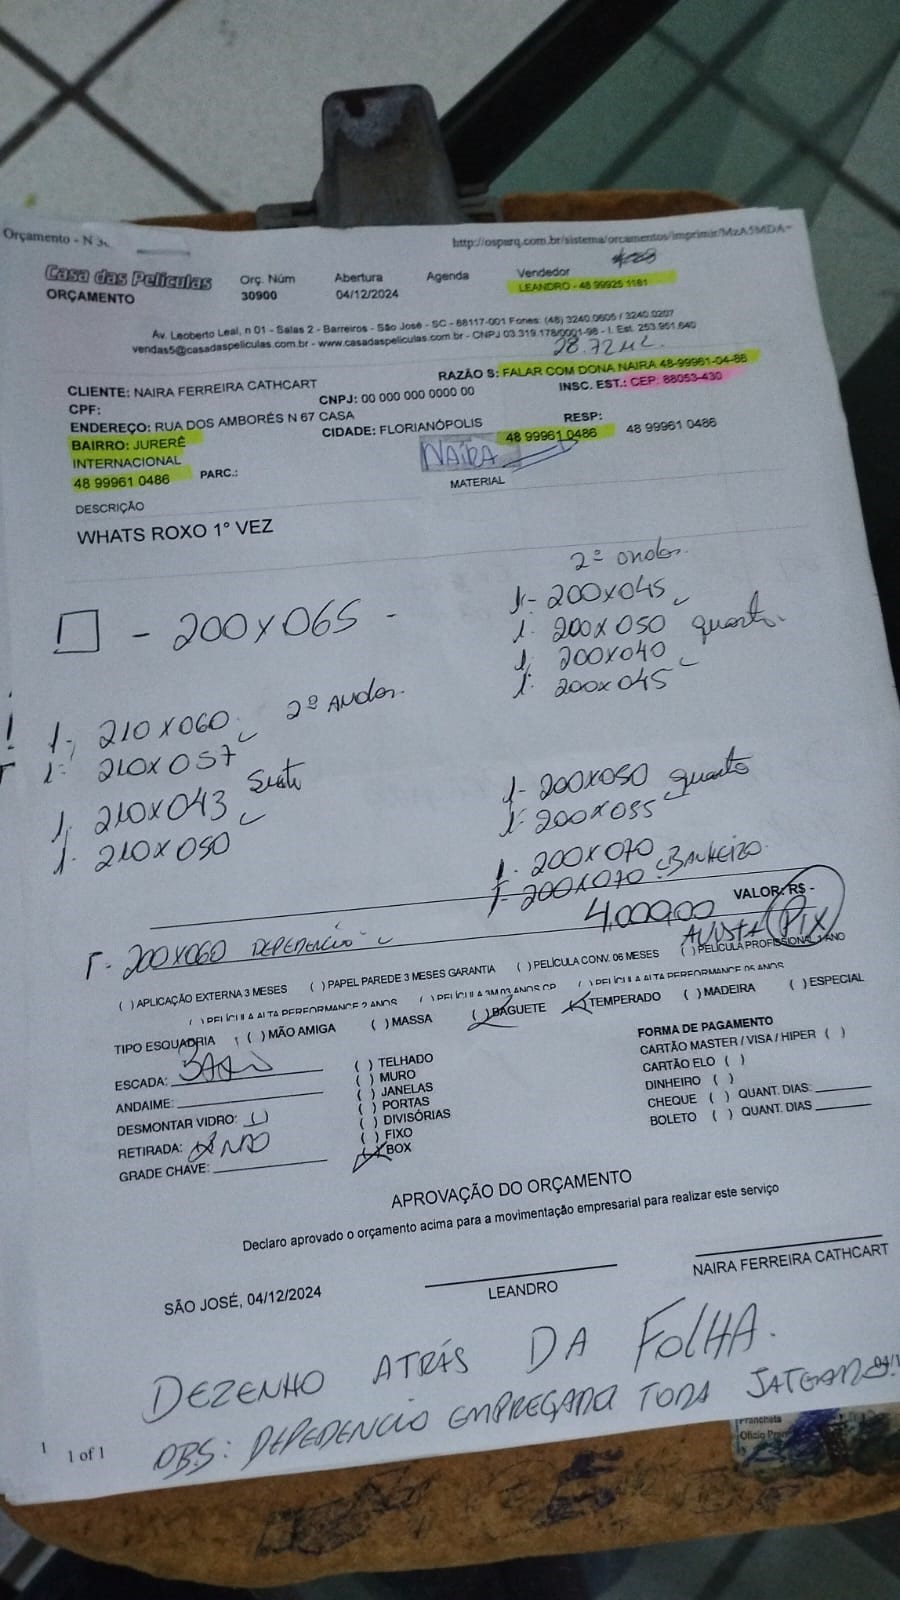 Orçamento - N
http://osparq.com.br/sistema/orcamentos/imprimir/MzA5MDA=
Casa das Películas
ORÇAMENTO
Orç. Núm
30900
Abertura
04/12/2024
Agenda
Vendedor
LEANDRO - 48 99925 1181
Av. Leoberto Leal, n 01 - Salas 2 - Barreiros - São José - SC - 88117-001 Fones: (48) 3240.0605 / 3240.0207
vendas5@casadaspeliculas.com.br - www.casadaspeliculas.com.br - CNPJ 03.319.178/0001-98 - I. Est. 253.951.640
28.72 M2.
CLIENTE: NAIRA FERREIRA CATHCART
RAZÃO S: FALAR COM DONA NAIRA 48-99961-04-86
CPF:
CNPJ: 00 000 000 0000 00
INSC. EST.: CEP. 88053-430
ENDEREÇO: RUA DOS AMBORÉS N 67 CASA
BAIRRO: JURERÊ INTERNACIONAL
CIDADE: FLORIANÓPOLIS
RESP:
48 99961 0486
48 99961 0486
48 99961 0486
PARC.:
NAIRA
MATERIAL
DESCRIÇÃO
WHATS ROXO 1° VEZ
- 200X065 -
2º andar.
1- 200X045
1. 200X050 quarto.
1, 200X040
1. 200X045
1-, 210X060. 2º Andar.
1- 210X057
1, 210X043 Suite
1. 210X050
1- 200X050 quarto
1- 200X055
1. 200X070
1- 200X070. BANHEIRO.
VALOR: R$ -
4.000,00
AVISTA PIX
1- 200X060 DEPEDENCIO
( ) APLICAÇÃO EXTERNA 3 MESES ( ) PAPEL PAREDE 3 MESES GARANTIA ( ) PELÍCULA CONV. 06 MESES ( ) PELÍCULA PROFISSIONAL 1 ANO
( ) PELÍCULA ALTA PERFORMANCE 2 ANOS ( ) PELÍCULA 3M 03 ANOS CP ( ) PELÍCULA ALTA PERFORMANCE 05 ANOS
TIPO ESQUADRIA ( ) MÃO AMIGA ( ) MASSA ( ) BAGUETE ( ) TEMPERADO ( ) MADEIRA ( ) ESPECIAL
ESCADA:
ANDAIME:
DESMONTAR VIDRO: ( )
RETIRADA: NÃO
GRADE CHAVE:
( ) TELHADO
( ) MURO
( ) JANELAS
( ) PORTAS
( ) DIVISÓRIAS
( ) FIXO
(X) BOX
FORMA DE PAGAMENTO
CARTÃO MASTER / VISA / HIPER ( )
CARTÃO ELO ( )
DINHEIRO ( )
CHEQUE ( ) QUANT. DIAS:
BOLETO ( ) QUANT. DIAS
APROVAÇÃO DO ORÇAMENTO
Declaro aprovado o orçamento acima para a movimentação empresarial para realizar este serviço
SÃO JOSÉ, 04/12/2024
LEANDRO
NAIRA FERREIRA CATHCART
DEZENHO ATRÁS DA FOLHA.
OBS: DEPEDENCIO EMPREGADA TODA
1
1 of 1
Franchista